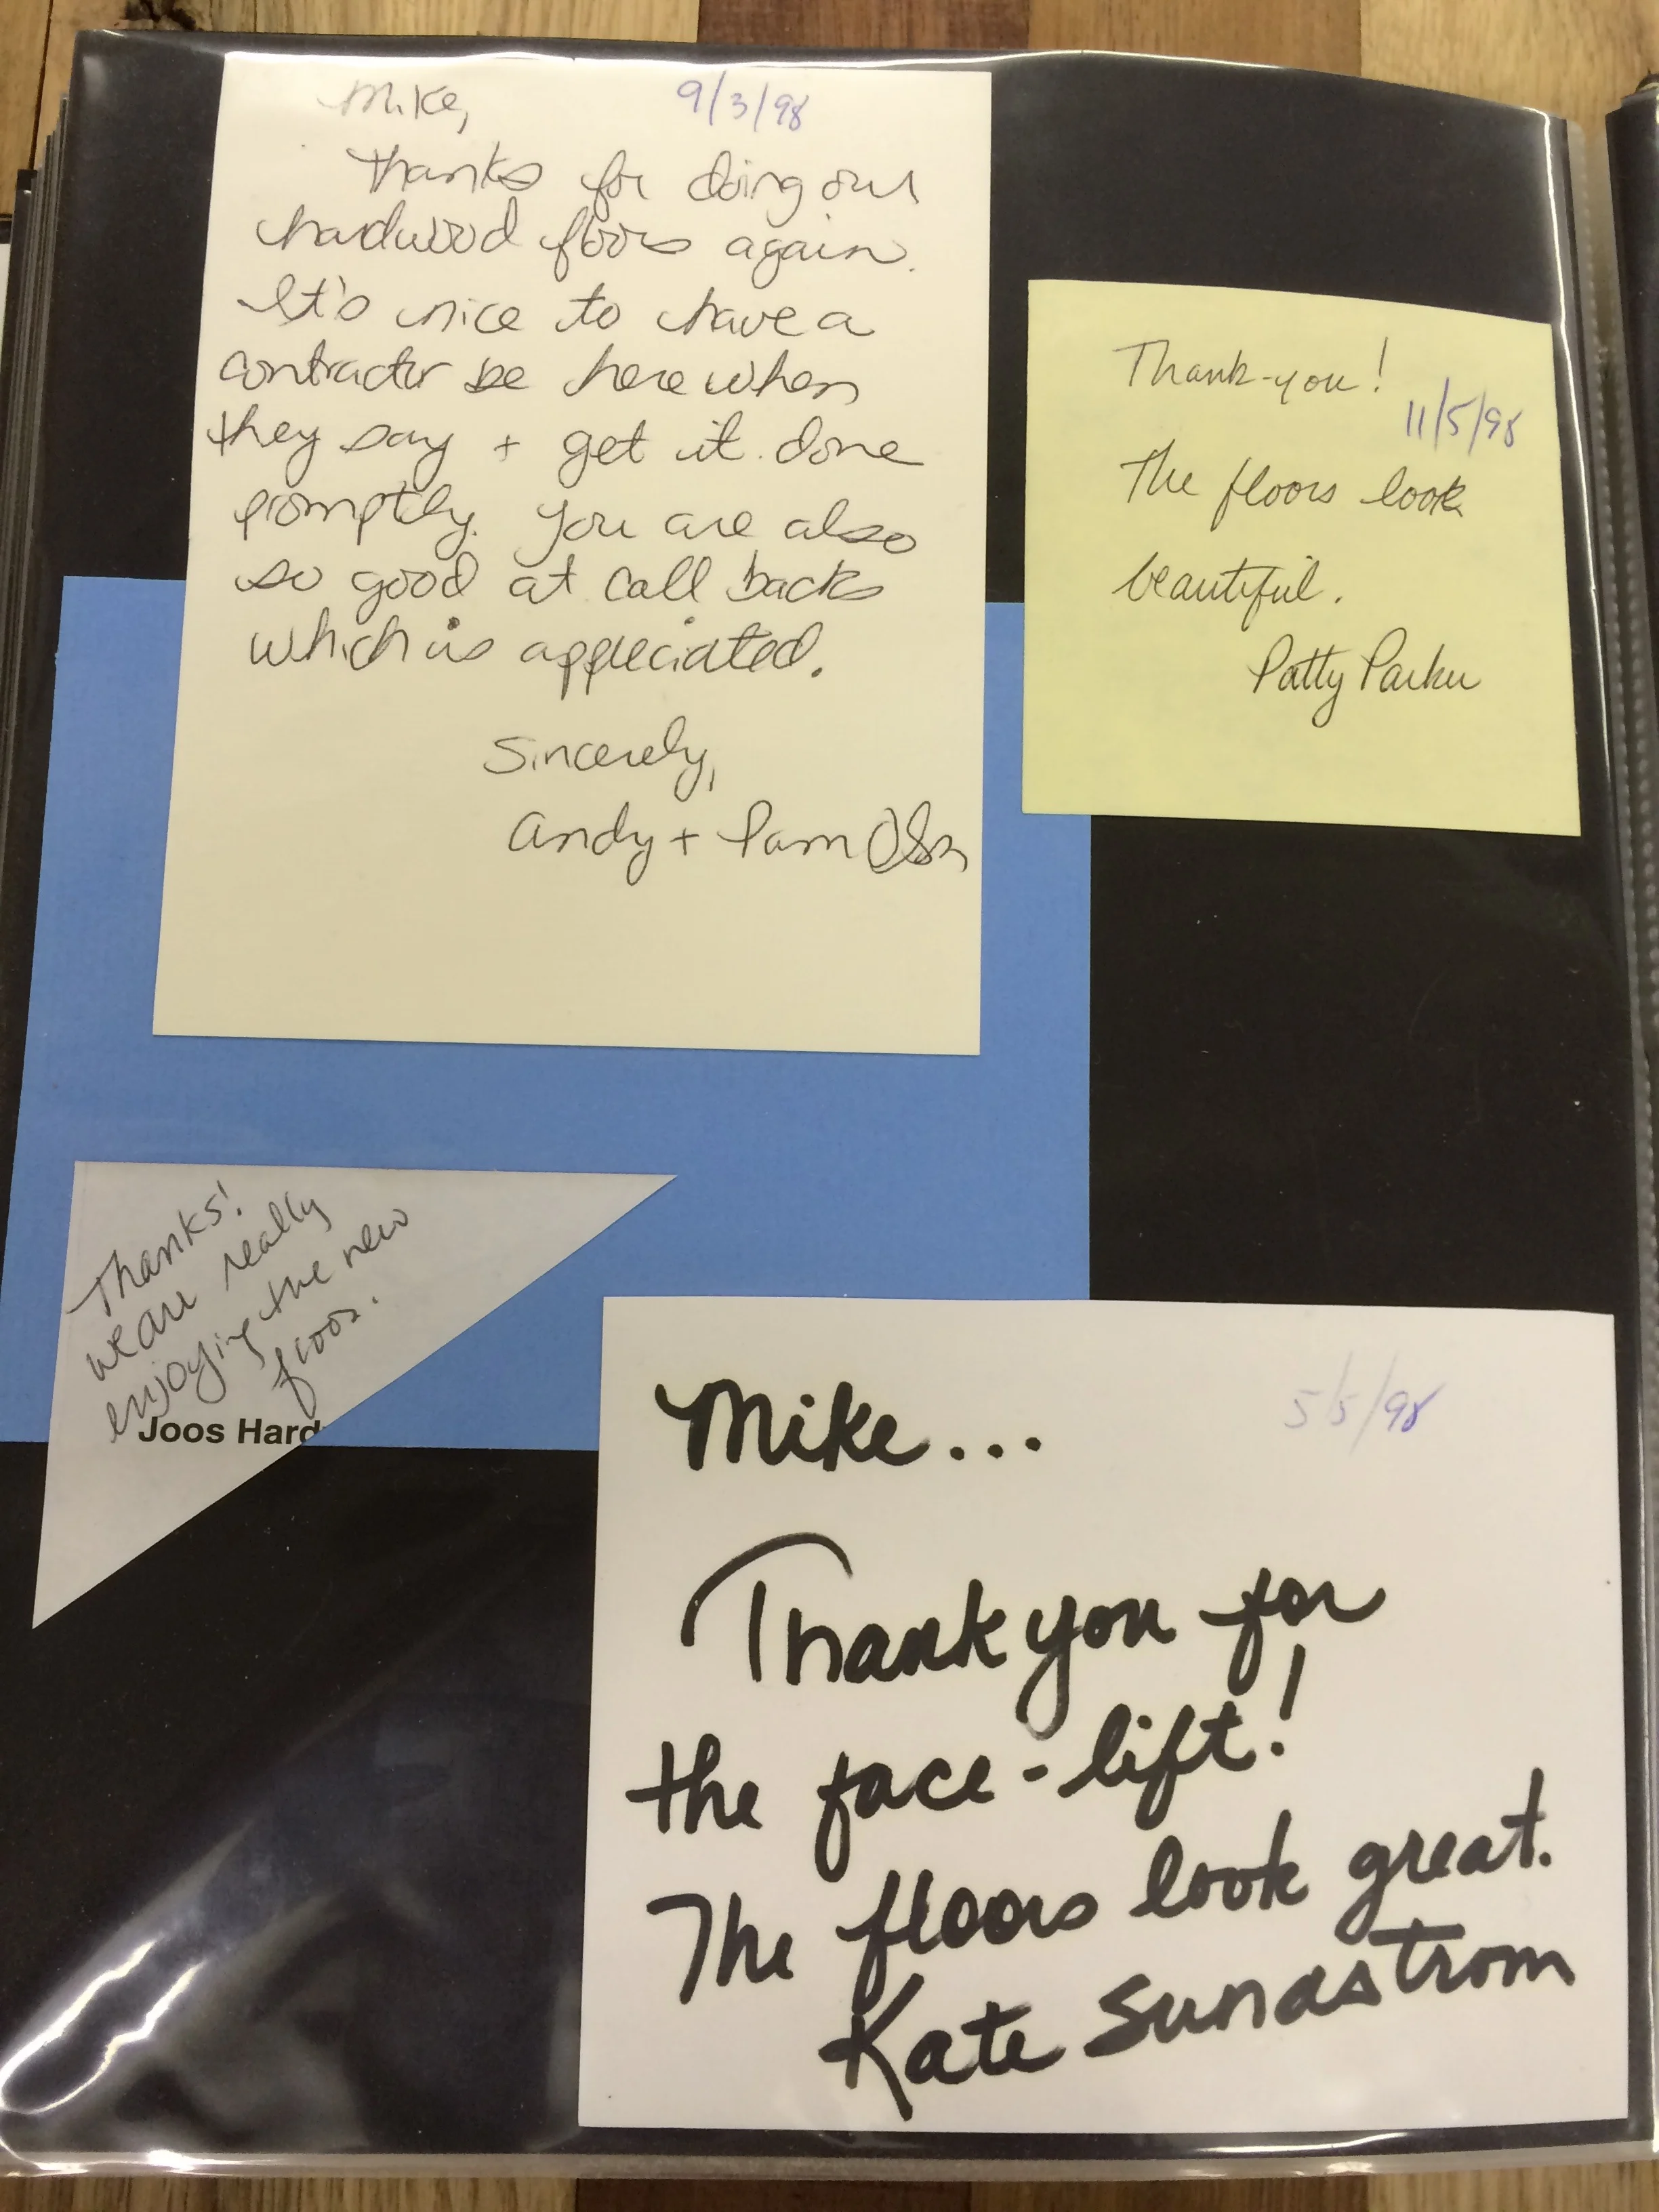 Mike, 9/3/98
Thanks for doing our
hardwood floors again.
It's nice to have a
contractor be here when
they say + get it done
promptly. You are also
so good at call backs
which is appreciated.
Sincerely,
Andy + Pam Olson
Thank-you!
11/5/98
The floors look
beautiful.
Patty Parker
Thanks!
we are really
enjoying the new
floor.
Joos Hard
Mike... 5/5/98
Thank you for
the face-lift!
The floors look great.
Kate Sundstrom